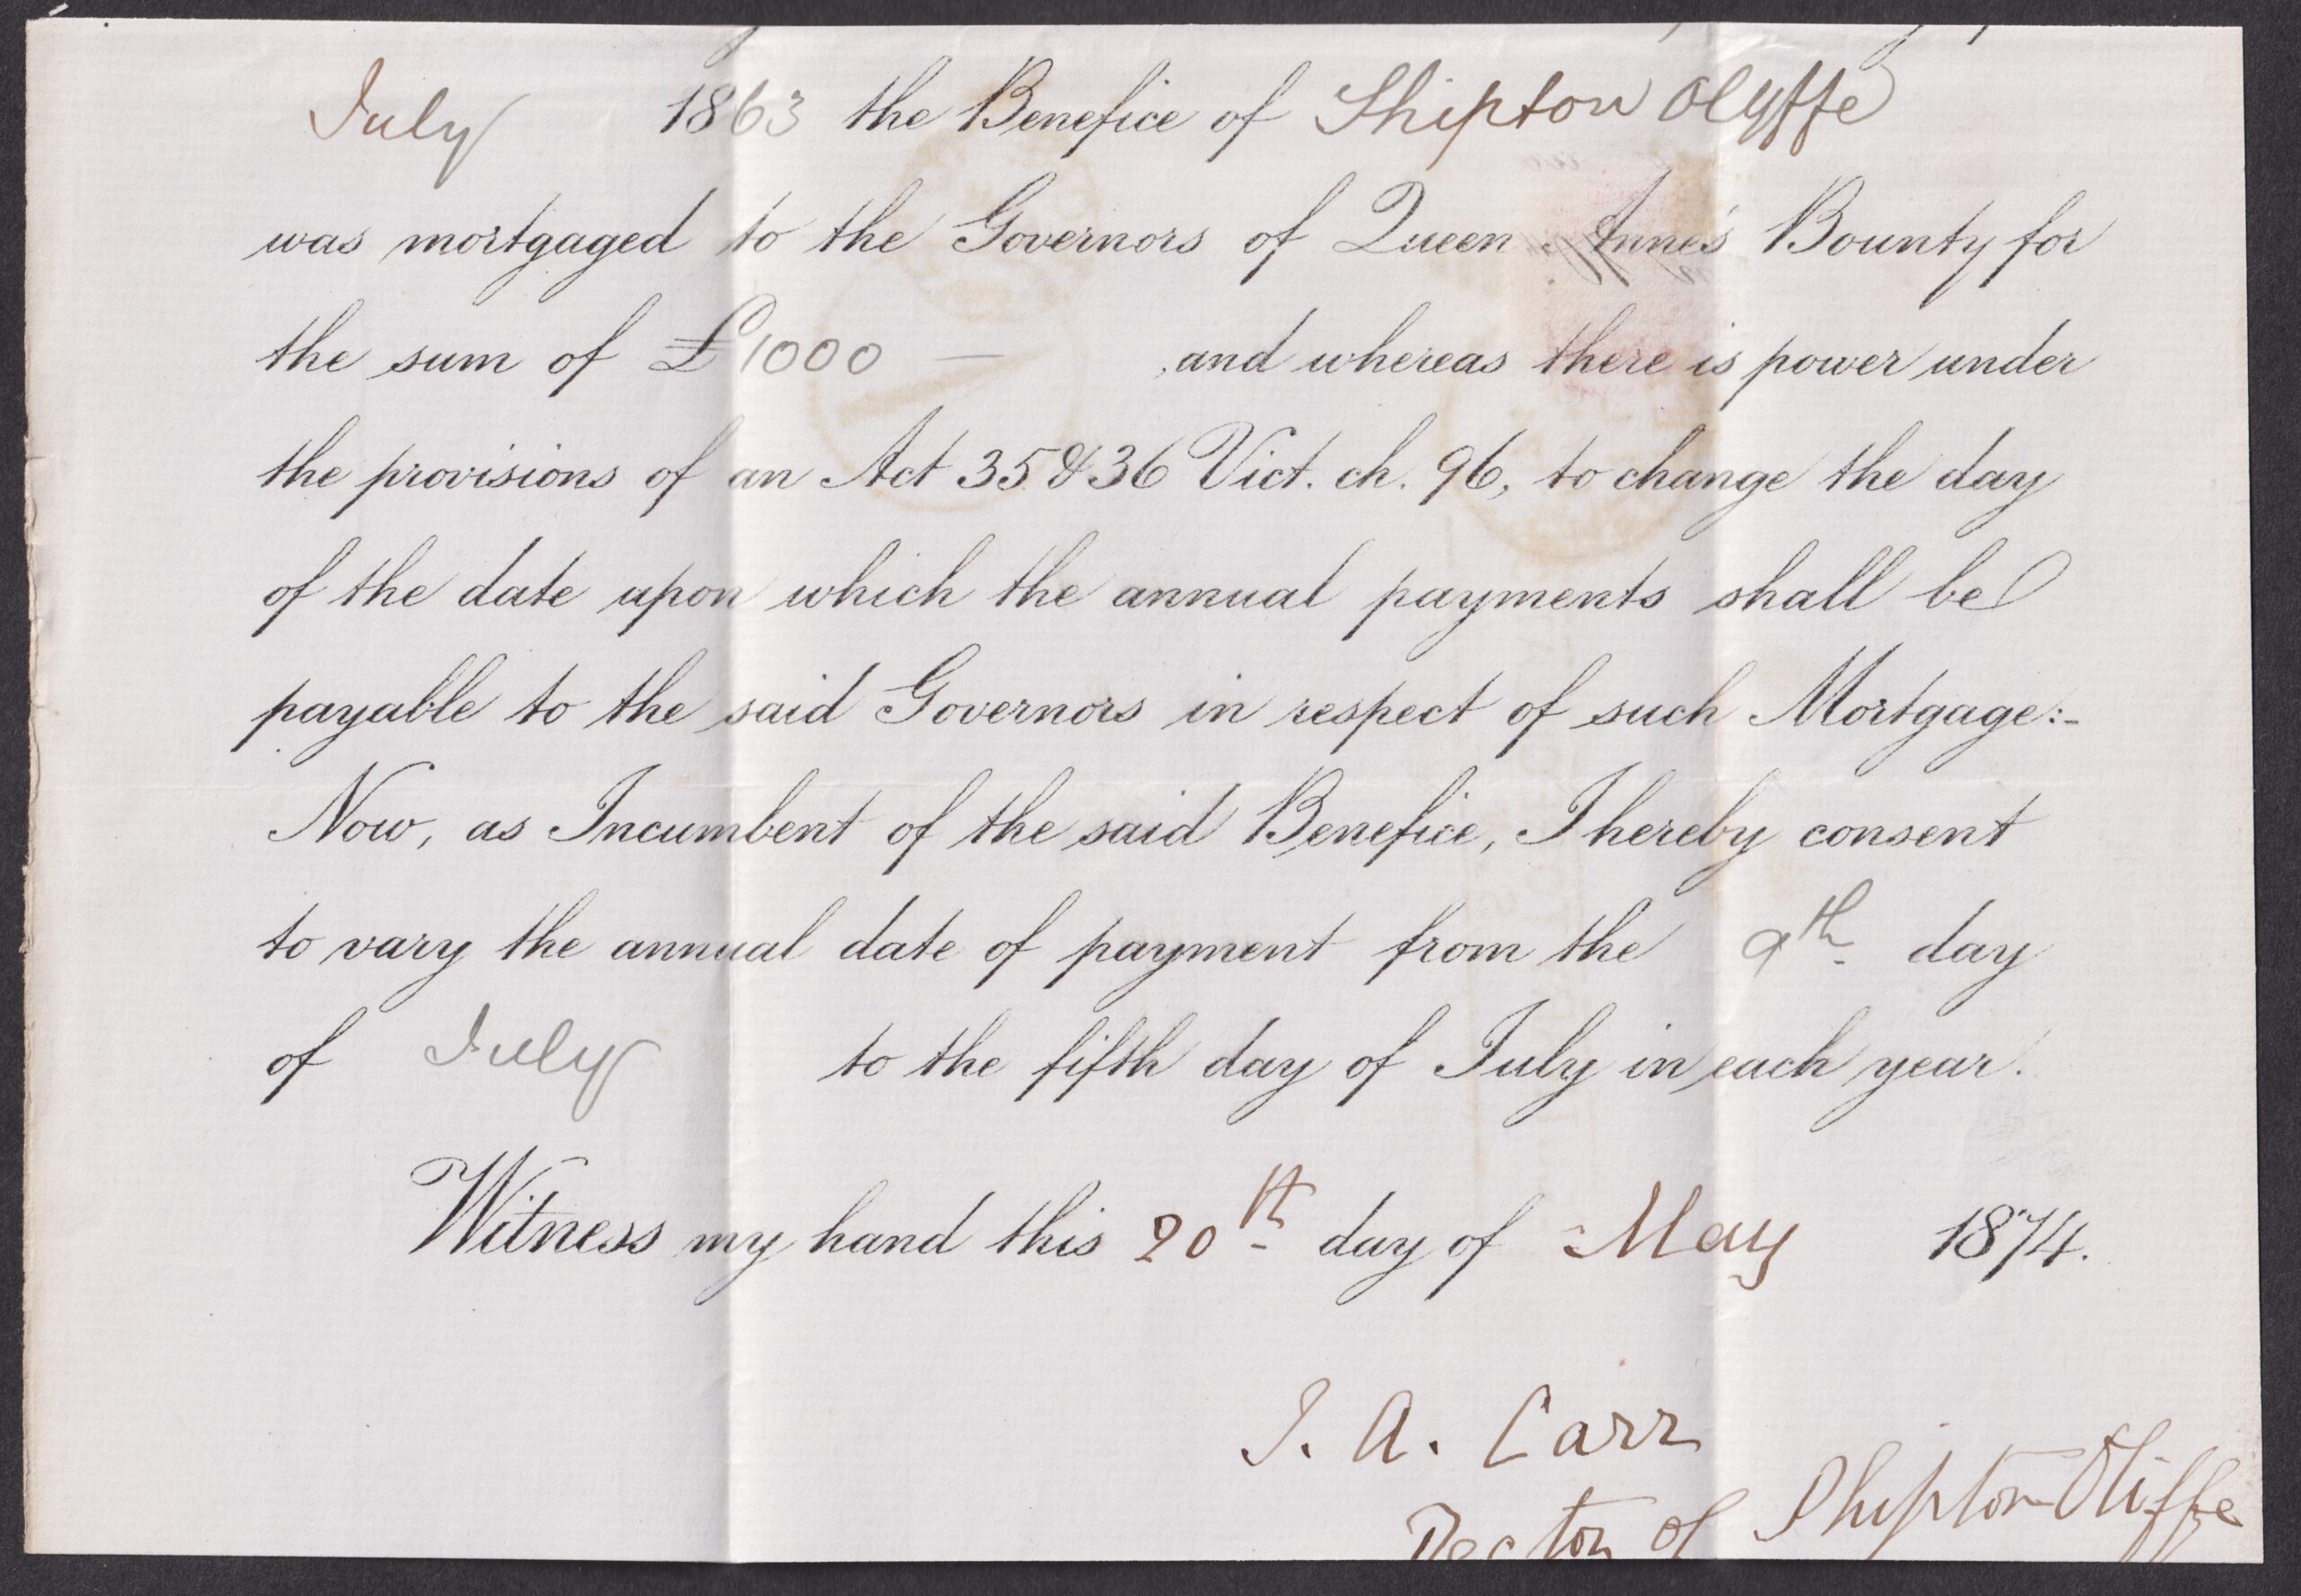 July 1863 the Benefice of Shipton Olyffe
was mortgaged to the Governors of Queen Anne's Bounty for
the sum of £1000 — and whereas there is power under
the provisions of an Act 35 & 36 Vict. ch. 96, to change the day
of the date upon which the annual payments shall be
payable to the said Governors in respect of such Mortgage:-
Now, as Incumbent of the said Benefice, I hereby consent
to vary the annual date of payment from the 9th day
of July to the fifth day of July in each year.
Witness my hand this 20th day of May 1874.
J. A. Carr
Rector of Shipton Oliffe